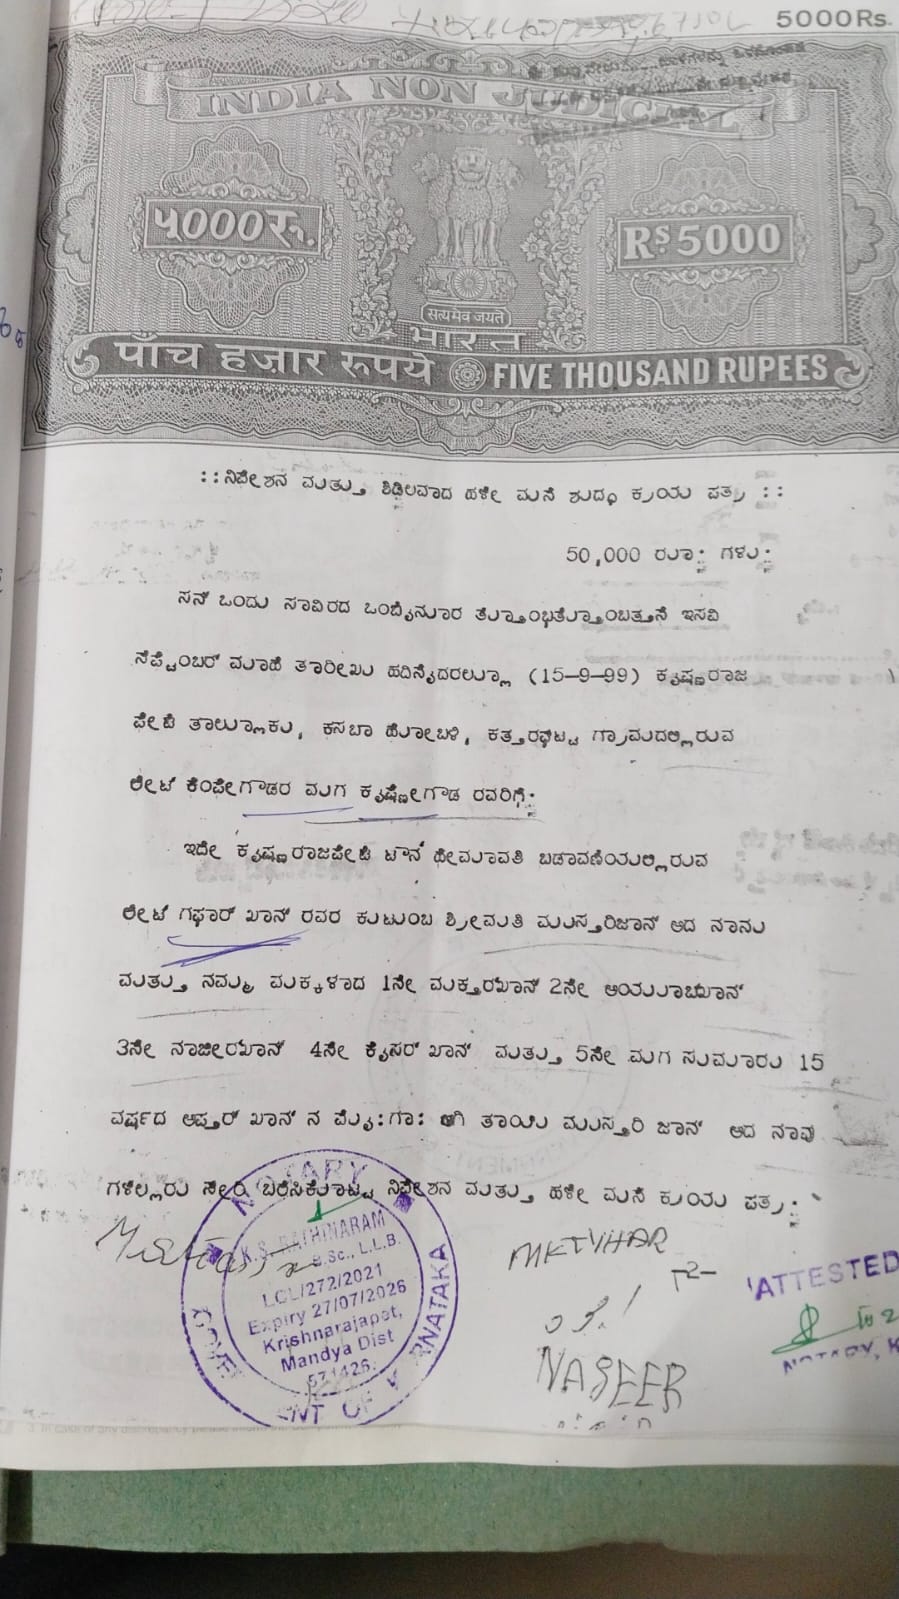 5000Rs.
INDIA NON JUDICIAL
५000रु.
Rs 5000
सत्यमेव जयते
भारत
पाँच हज़ार रुपये FIVE THOUSAND RUPEES
::ನಿವೇಶನ ಮತ್ತು ಶಿಥಿಲವಾದ ಹಳೇ ಮನೆ ಶುದ್ಧ ಕ್ರಯ ಪತ್ರ ::
50,000 ರೂ: ಗಳು:
ಸನ್ ಒಂದು ಸಾವಿರದ ಒಂಬೈನೂರ ತೊಂಭತ್ತೊಂಬತ್ತನೆ ಇಸವಿ
ಸೆಪ್ಟೆಂಬರ್ ಮಾಹೆ ತಾರೀಖು ಹದಿನೈದರಲ್ಲೂ (15-9-99) ಕೃಷ್ಣರಾಜ
ಪೇಟೆ ತಾಲ್ಲೂಕು, ಕಸಬಾ ಹೋಬಳಿ, ಕತ್ತರಘಟ್ಟ ಗ್ರಾಮದಲ್ಲಿರುವ
ಲೇಟ್ ಕೆಂಪೇಗೌಡರ ಮಗ ಕೃಷ್ಣೇಗೌಡ ರವರಿಗೆ:
ಇದೇ ಕೃಷ್ಣರಾಜಪೇಟೆ ಟೌನ್ ಹೇಮಾವತಿ ಬಡಾವಣೆಯಲ್ಲಿರುವ
ಲೇಟ್ ಗಫಾರ್ ಖಾನ್ ರವರ ಕುಟುಂಬ ಶ್ರೀಮತಿ ಮುಸ್ತರಿಜಾನ್ ಆದ ನಾನು
ಮತ್ತು ನಮ್ಮ ಮಕ್ಕಳಾದ 1ನೇ ಮುಕ್ತರಖಾನ್ 2ನೇ ಅಯೂಬಖಾನ್
3ನೇ ನಾಜೀರಖಾನ್ 4ನೇ ಕೈಸರ್ ಖಾನ್ ಮತ್ತು 5ನೇ ಮಗ ಸುಮಾರು 15
ವರ್ಷದ ಅಪ್ಸರ್ ಖಾನ್ ನ ಮೈ:ಗಾ: ಆಗಿ ತಾಯಿ ಮುಸ್ತರಿ ಜಾನ್ ಆದ ನಾವು
ಗಳೆಲ್ಲರು ಸೇರಿ ಬರೆಸಿಕೊಟ್ಟ ನಿವೇಶನ ಮತ್ತು ಹಳೇ ಮನೆ ಕ್ರಯ ಪತ್ರ:
NOTARY
K.S. RATHINARAM
B.Sc., L.L.B.
LCL/272/2021
Expiry 27/07/2026
Krishnarajapet,
Mandya Dist
571426.
NASEER
ATTESTED
NOTARY, K